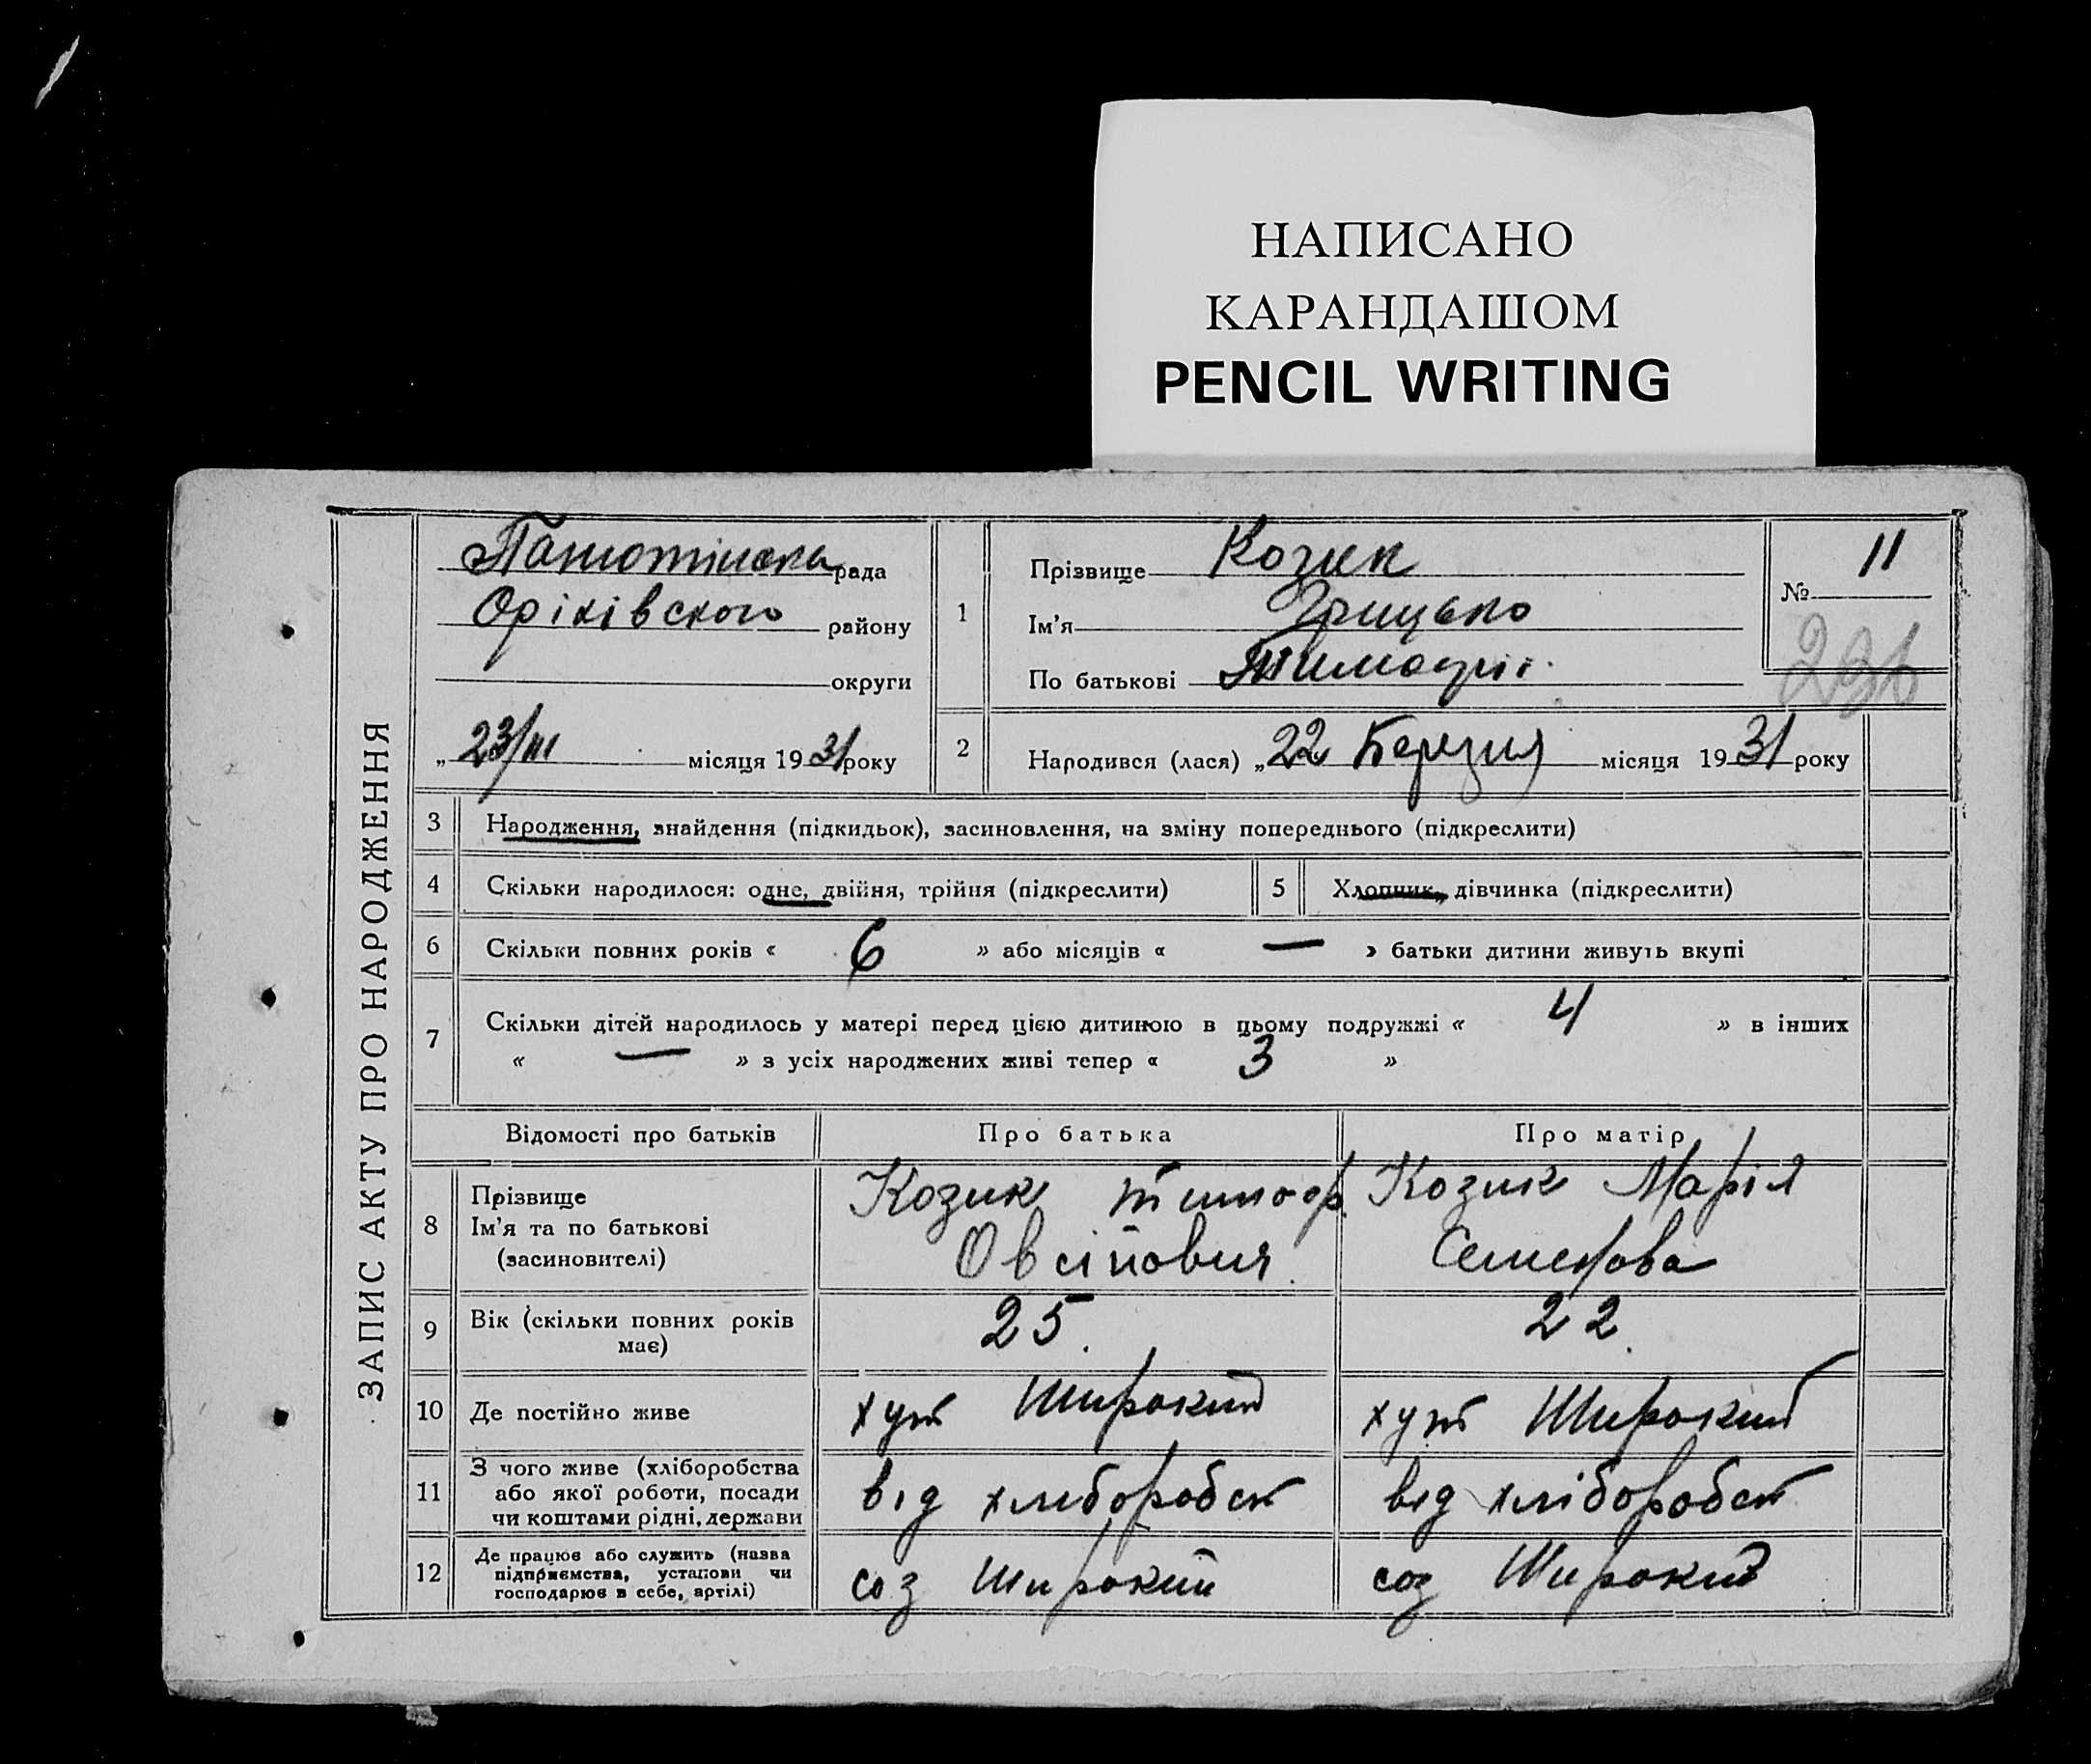 НАПИСАНО
КАРАНДАШОМ
PENCIL WRITING
ЗАПИС АКТУ ПРО НАРОДЖЕННЯ
Панютінська рада
Оріхівського району
округи
„ 23/III місяця 1931 року
1
Прізвище Козик
Ім'я Грицько
По батькові Тимофіі.
№ 11
2
Народився (лася) „ 22 Березня місяця 1931 року
3 Народження, знайдення (підкидьок), засиновлення, на зміну попереднього (підкреслити)
4 Скільки народилося: одне, двійня, трійня (підкреслити) 5 Хлопчик, дівчинка (підкреслити)
6 Скільки повних років « 6 » або місяців « — » батьки дитини живуть вкупі
7 Скільки дітей народилось у матері перед цією дитиною в цьому подружжі « 4 » в інших
« — » з усіх народжених живі тепер « 3 »
Відомості про батьків Про батька Про матір
8 Прізвище
Ім'я та по батькові
(засиновителі)
Козик Тимоф.
Овсіпович
Козик Марія
Семенова
9 Вік (скільки повних років
має)
25. 22.
10 Де постійно живе хут Широкий хут Широкий
11 З чого живе (хліборобства
або якої роботи, посади
чи коштами рідні, держави
від хліборобст від хліборобст
12 Де працює або служить (назва
підприємства, установи чи
господарює в себе, артілі)
соз Широкий соз Широкий